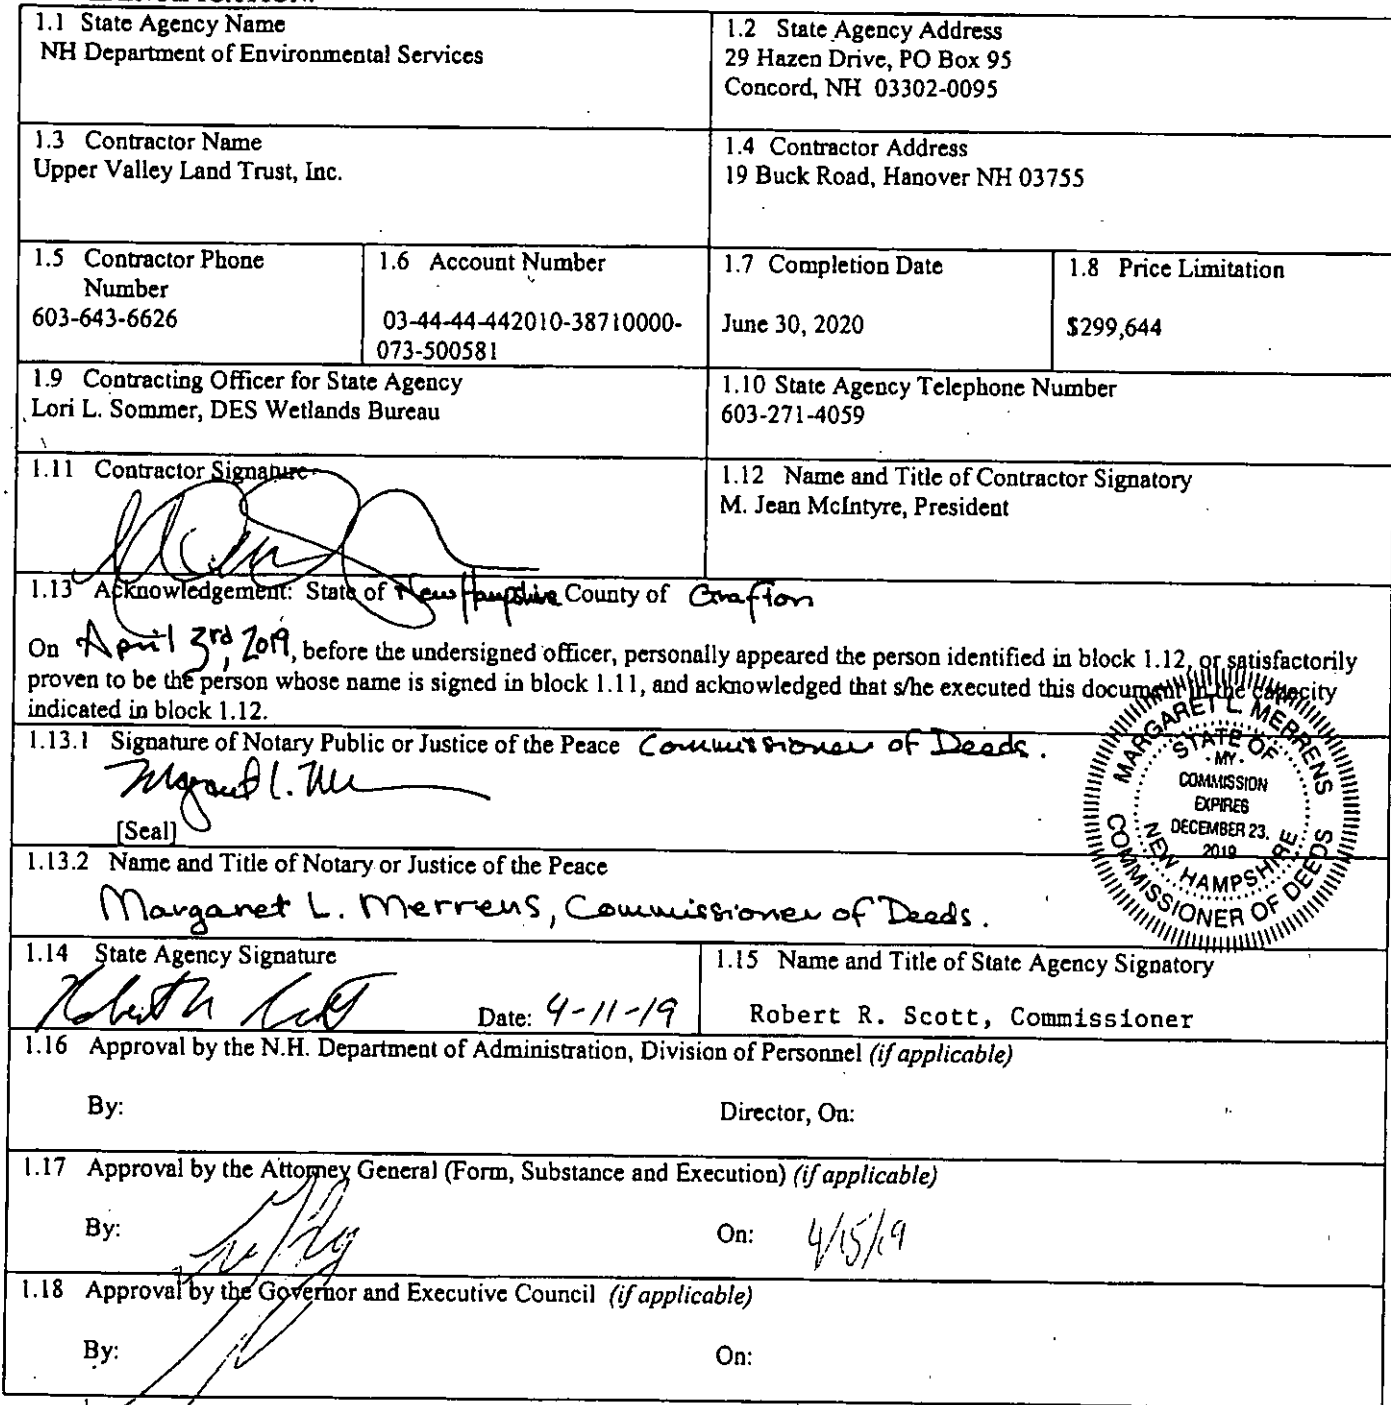 1.1 State Agency Name
NH Department of Environmental Services
1.2 State Agency Address
29 Hazen Drive, PO Box 95
Concord, NH 03302-0095
1.3 Contractor Name
Upper Valley Land Trust, Inc.
1.4 Contractor Address
19 Buck Road, Hanover NH 03755
1.5 Contractor Phone
Number
603-643-6626
1.6 Account Number
03-44-44-442010-38710000-
073-500581
1.7 Completion Date
June 30, 2020
1.8 Price Limitation
$299,644
1.9 Contracting Officer for State Agency
Lori L. Sommer, DES Wetlands Bureau
1.10 State Agency Telephone Number
603-271-4059
1.11 Contractor Signature
1.12 Name and Title of Contractor Signatory
M. Jean McIntyre, President
1.13 Acknowledgement: State of New Hampshire County of Grafton
On April 3rd, 2019, before the undersigned officer, personally appeared the person identified in block 1.12, or satisfactorily
proven to be the person whose name is signed in block 1.11, and acknowledged that s/he executed this document in the capacity
indicated in block 1.12.
1.13.1 Signature of Notary Public or Justice of the Peace Commissioner of Deeds.
[Seal]
MARGARET L. MERRENS
COMMISSIONER OF DEEDS
STATE OF
NEW HAMPSHIRE
MY
COMMISSION
EXPIRES
DECEMBER 23,
2019
1.13.2 Name and Title of Notary or Justice of the Peace
Margaret L. Merrens, Commissioner of Deeds.
1.14 State Agency Signature
Date: 4-11-19
1.15 Name and Title of State Agency Signatory
Robert R. Scott, Commissioner
1.16 Approval by the N.H. Department of Administration, Division of Personnel (if applicable)
By:
Director, On:
1.17 Approval by the Attorney General (Form, Substance and Execution) (if applicable)
By:
On: 4/15/19
1.18 Approval by the Governor and Executive Council (if applicable)
By:
On: